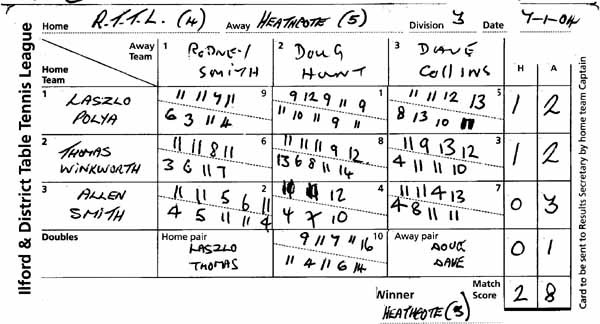 Ilford & District Table Tennis League
Home R.T.T.L. (4) Away HEATHCOTE (5) Division 3 Date 7-1-04
Away Team
Home Team
1 RODNEY SMITH
2 DOUG HUNT
3 DAVE COLLINS
H A
1 LASZLO POLYA
9
11 11 9 11
6 3 11 4
1
9 12 9 11 9
11 10 11 9 11
5
11 11 12 13
8 13 10
1 2
2 THOMAS WINKWORTH
6
11 11 8 11
3 6 11 7
8
11 11 8 9 12
13 6 8 11 14
3
11 9 13 12
4 11 11 10
1 2
3 ALLEN SMITH
2
11 11 5 6 11
4 5 11 11 4
4
12
4 7 10
7
11 11 4 13
4 8 11 11
0 3
Doubles
Home pair
LASZLO
THOMAS
10
9 11 7 11 16
11 4 11 6 14
Away pair
DOUG
DAVE
0 1
Winner HEATHCOTE (5)
Match Score 2 8
Card to be sent to Results Secretary by home team Captain